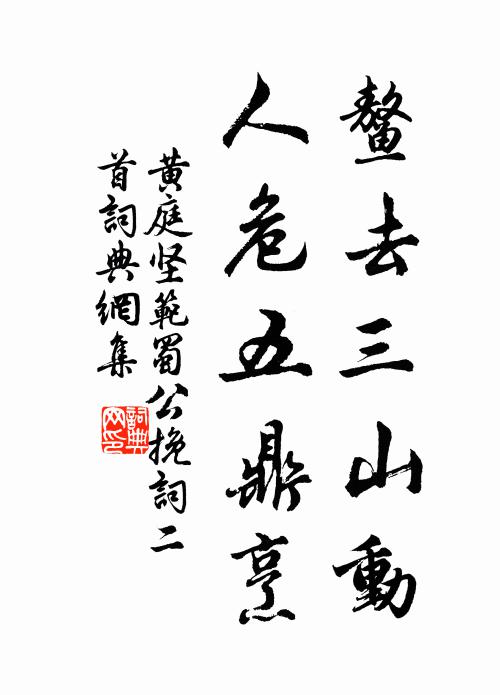 鰲去三山動
人危五鼎烹
黄庭坚範蜀公挽詞二
首詞典網集
詞典
网印